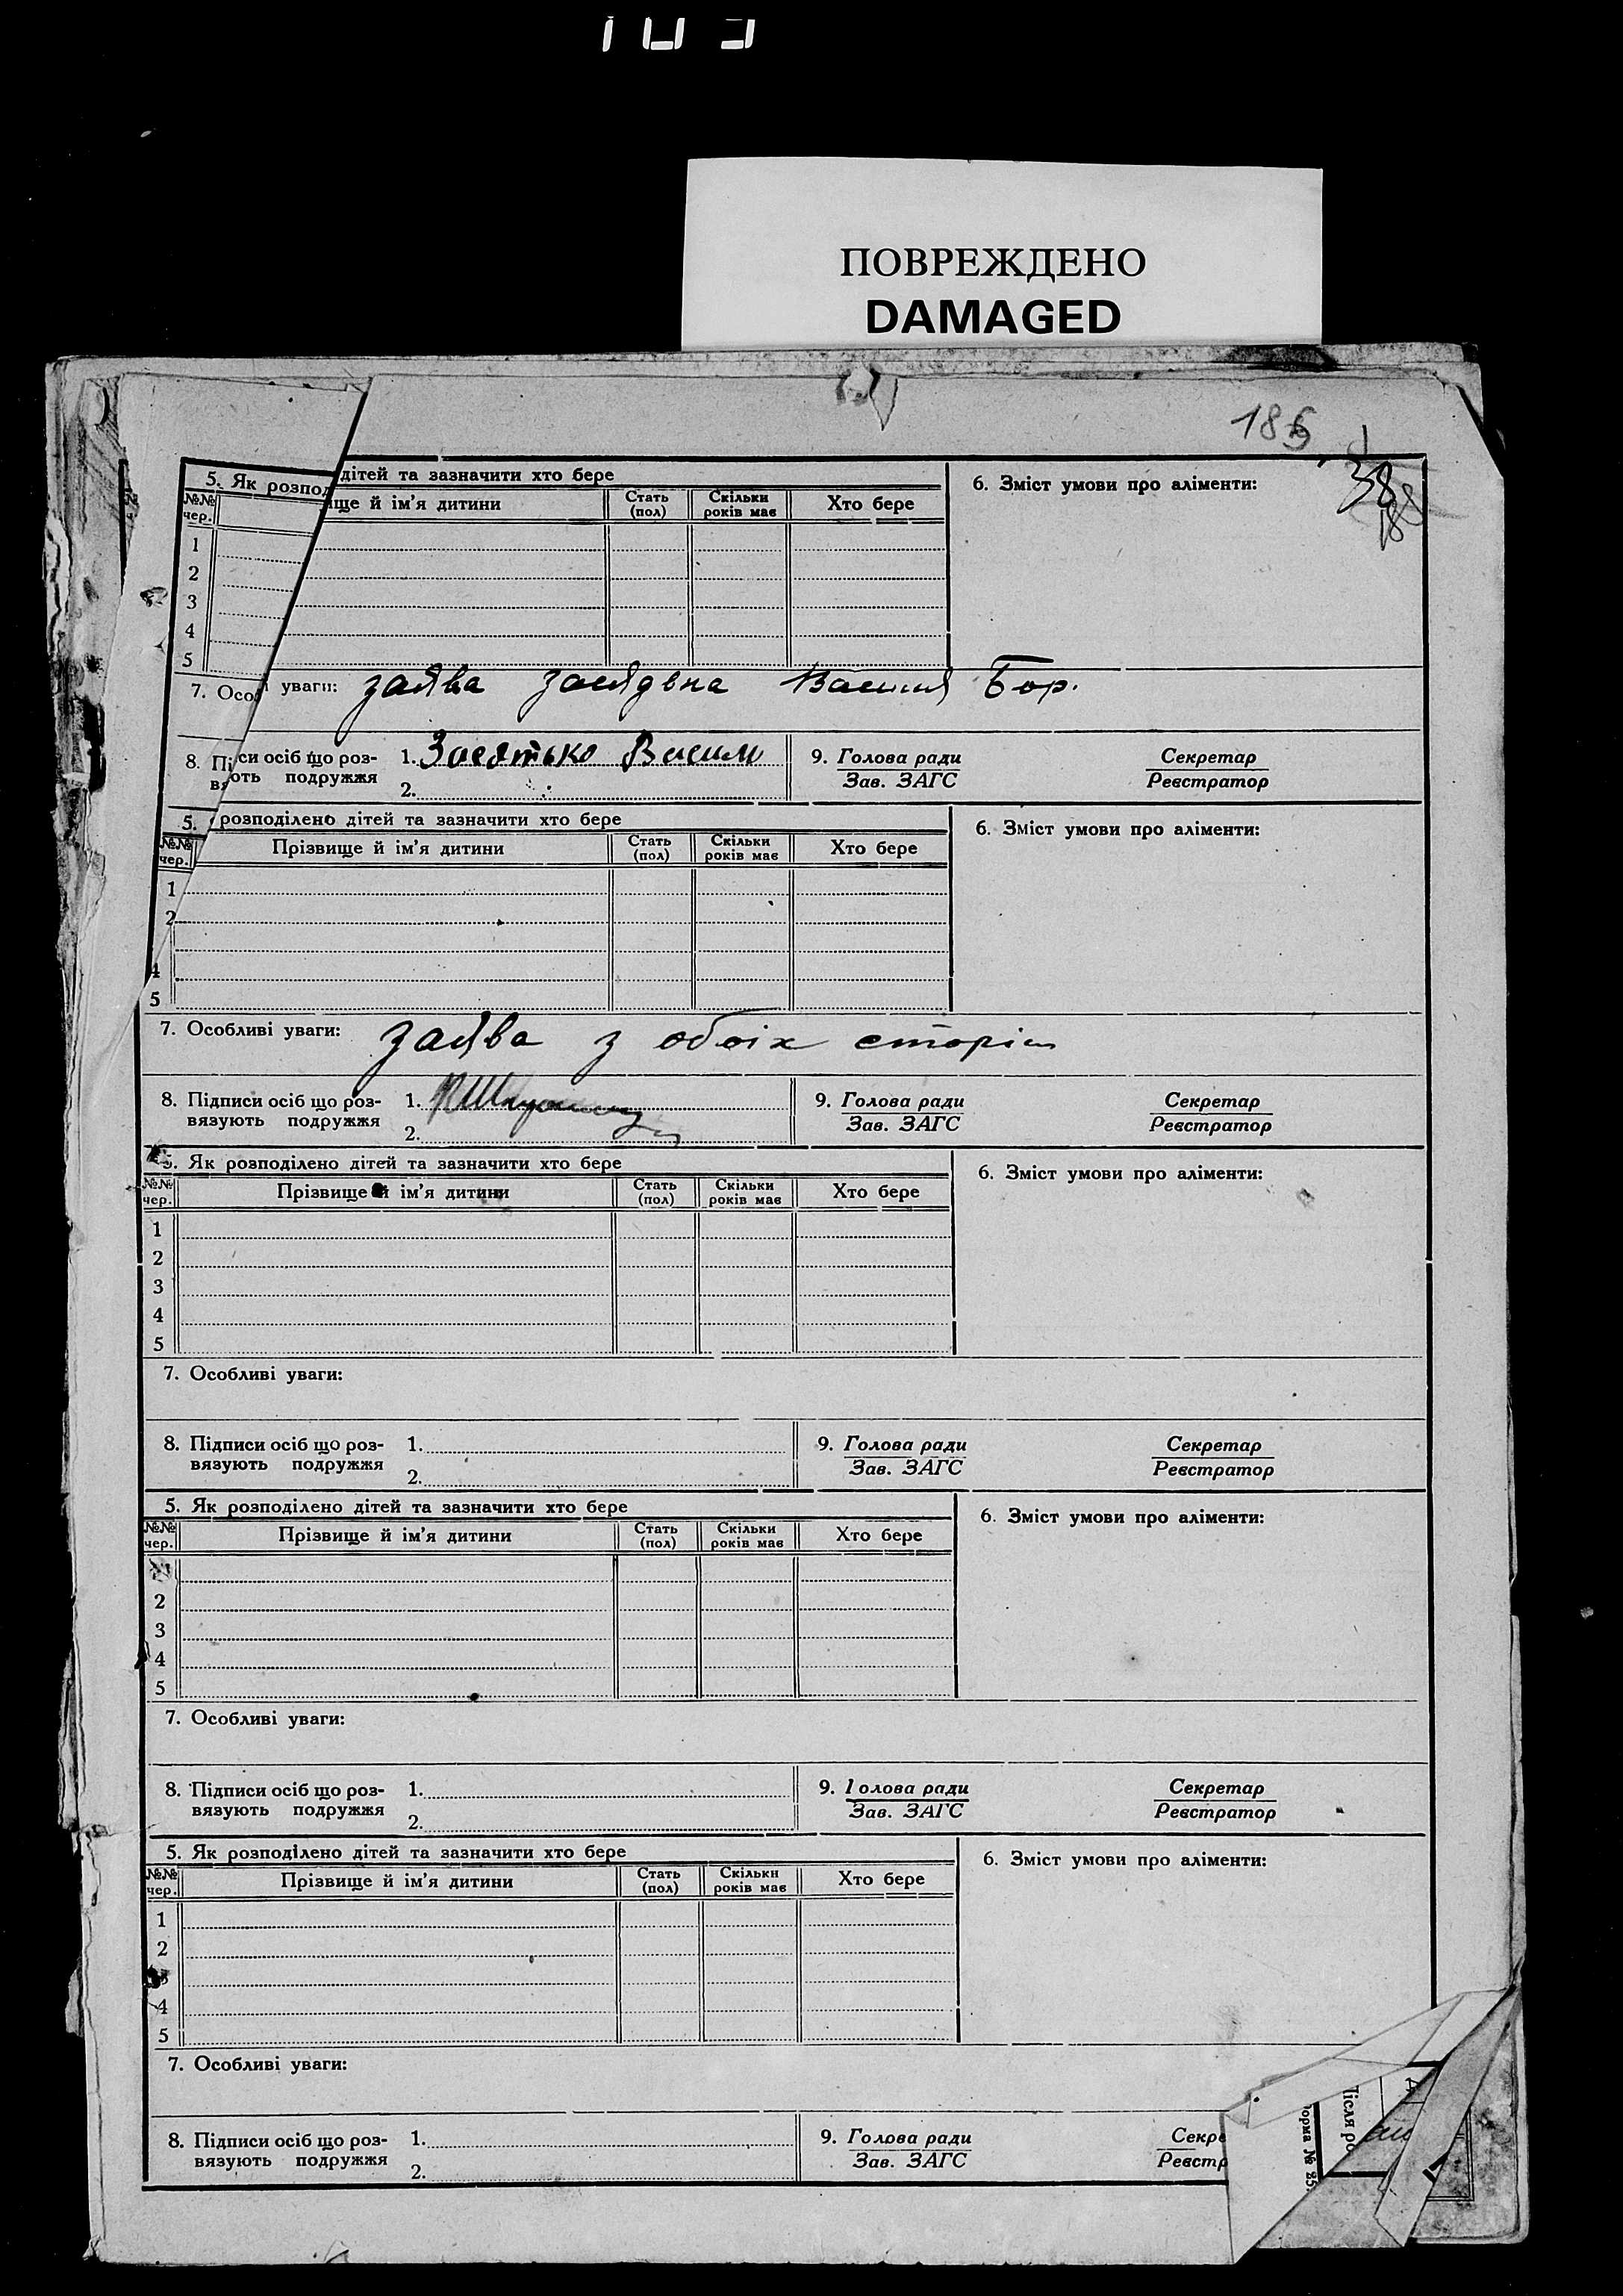 ПОВРЕЖДЕНО
DAMAGED
5. Як розпод дітей та зазначити хто бере
6. Зміст умови про аліменти:
38
№№ чер.
ще й ім'я дитини
Стать (пол)
Скільки років має
Хто бере
1
2
3
4
5
7. Осо уваги: заява Василя Бор.
8. Пі си осіб що роз-
вя ють подружжя
1. Засятько Васил
2.
9. Голова ради
Зав. ЗАГС
Секретар
Реєстратор
5. розподілено дітей та зазначити хто бере
6. Зміст умови про аліменти:
№№ чер.
Прізвище й ім'я дитини
Стать (пол)
Скільки років має
Хто бере
1
2
4
5
7. Особливі уваги: заява з обоіх сторін
8. Підписи осіб що роз-
вязують подружжя
1.
2.
9. Голова ради
Зав. ЗАГС
Секретар
Реєстратор
5. Як розподілено дітей та зазначити хто бере
6. Зміст умови про аліменти:
№№ чер.
Прізвище й ім'я дитини
Стать (пол)
Скільки років має
Хто бере
1
2
3
4
5
7. Особливі уваги:
8. Підписи осіб що роз-
вязують подружжя
1.
2.
9. Голова ради
Зав. ЗАГС
Секретар
Реєстратор
5. Як розподілено дітей та зазначити хто бере
6. Зміст умови про аліменти:
№№ чер.
Прізвище й ім'я дитини
Стать (пол)
Скільки років має
Хто бере
1
2
3
4
5
7. Особливі уваги:
8. Підписи осіб що роз-
вязують подружжя
1.
2.
9. Голова ради
Зав. ЗАГС
Секретар
Реєстратор
5. Як розподілено дітей та зазначити хто бере
6. Зміст умови про аліменти:
№№ чер.
Прізвище й ім'я дитини
Стать (пол)
Скільки років має
Хто бере
1
2
3
4
5
7. Особливі уваги:
8. Підписи осіб що роз-
вязують подружжя
1.
2.
9. Голова ради
Зав. ЗАГС
Секре
Реєстр
орма № 25.
ісля ро